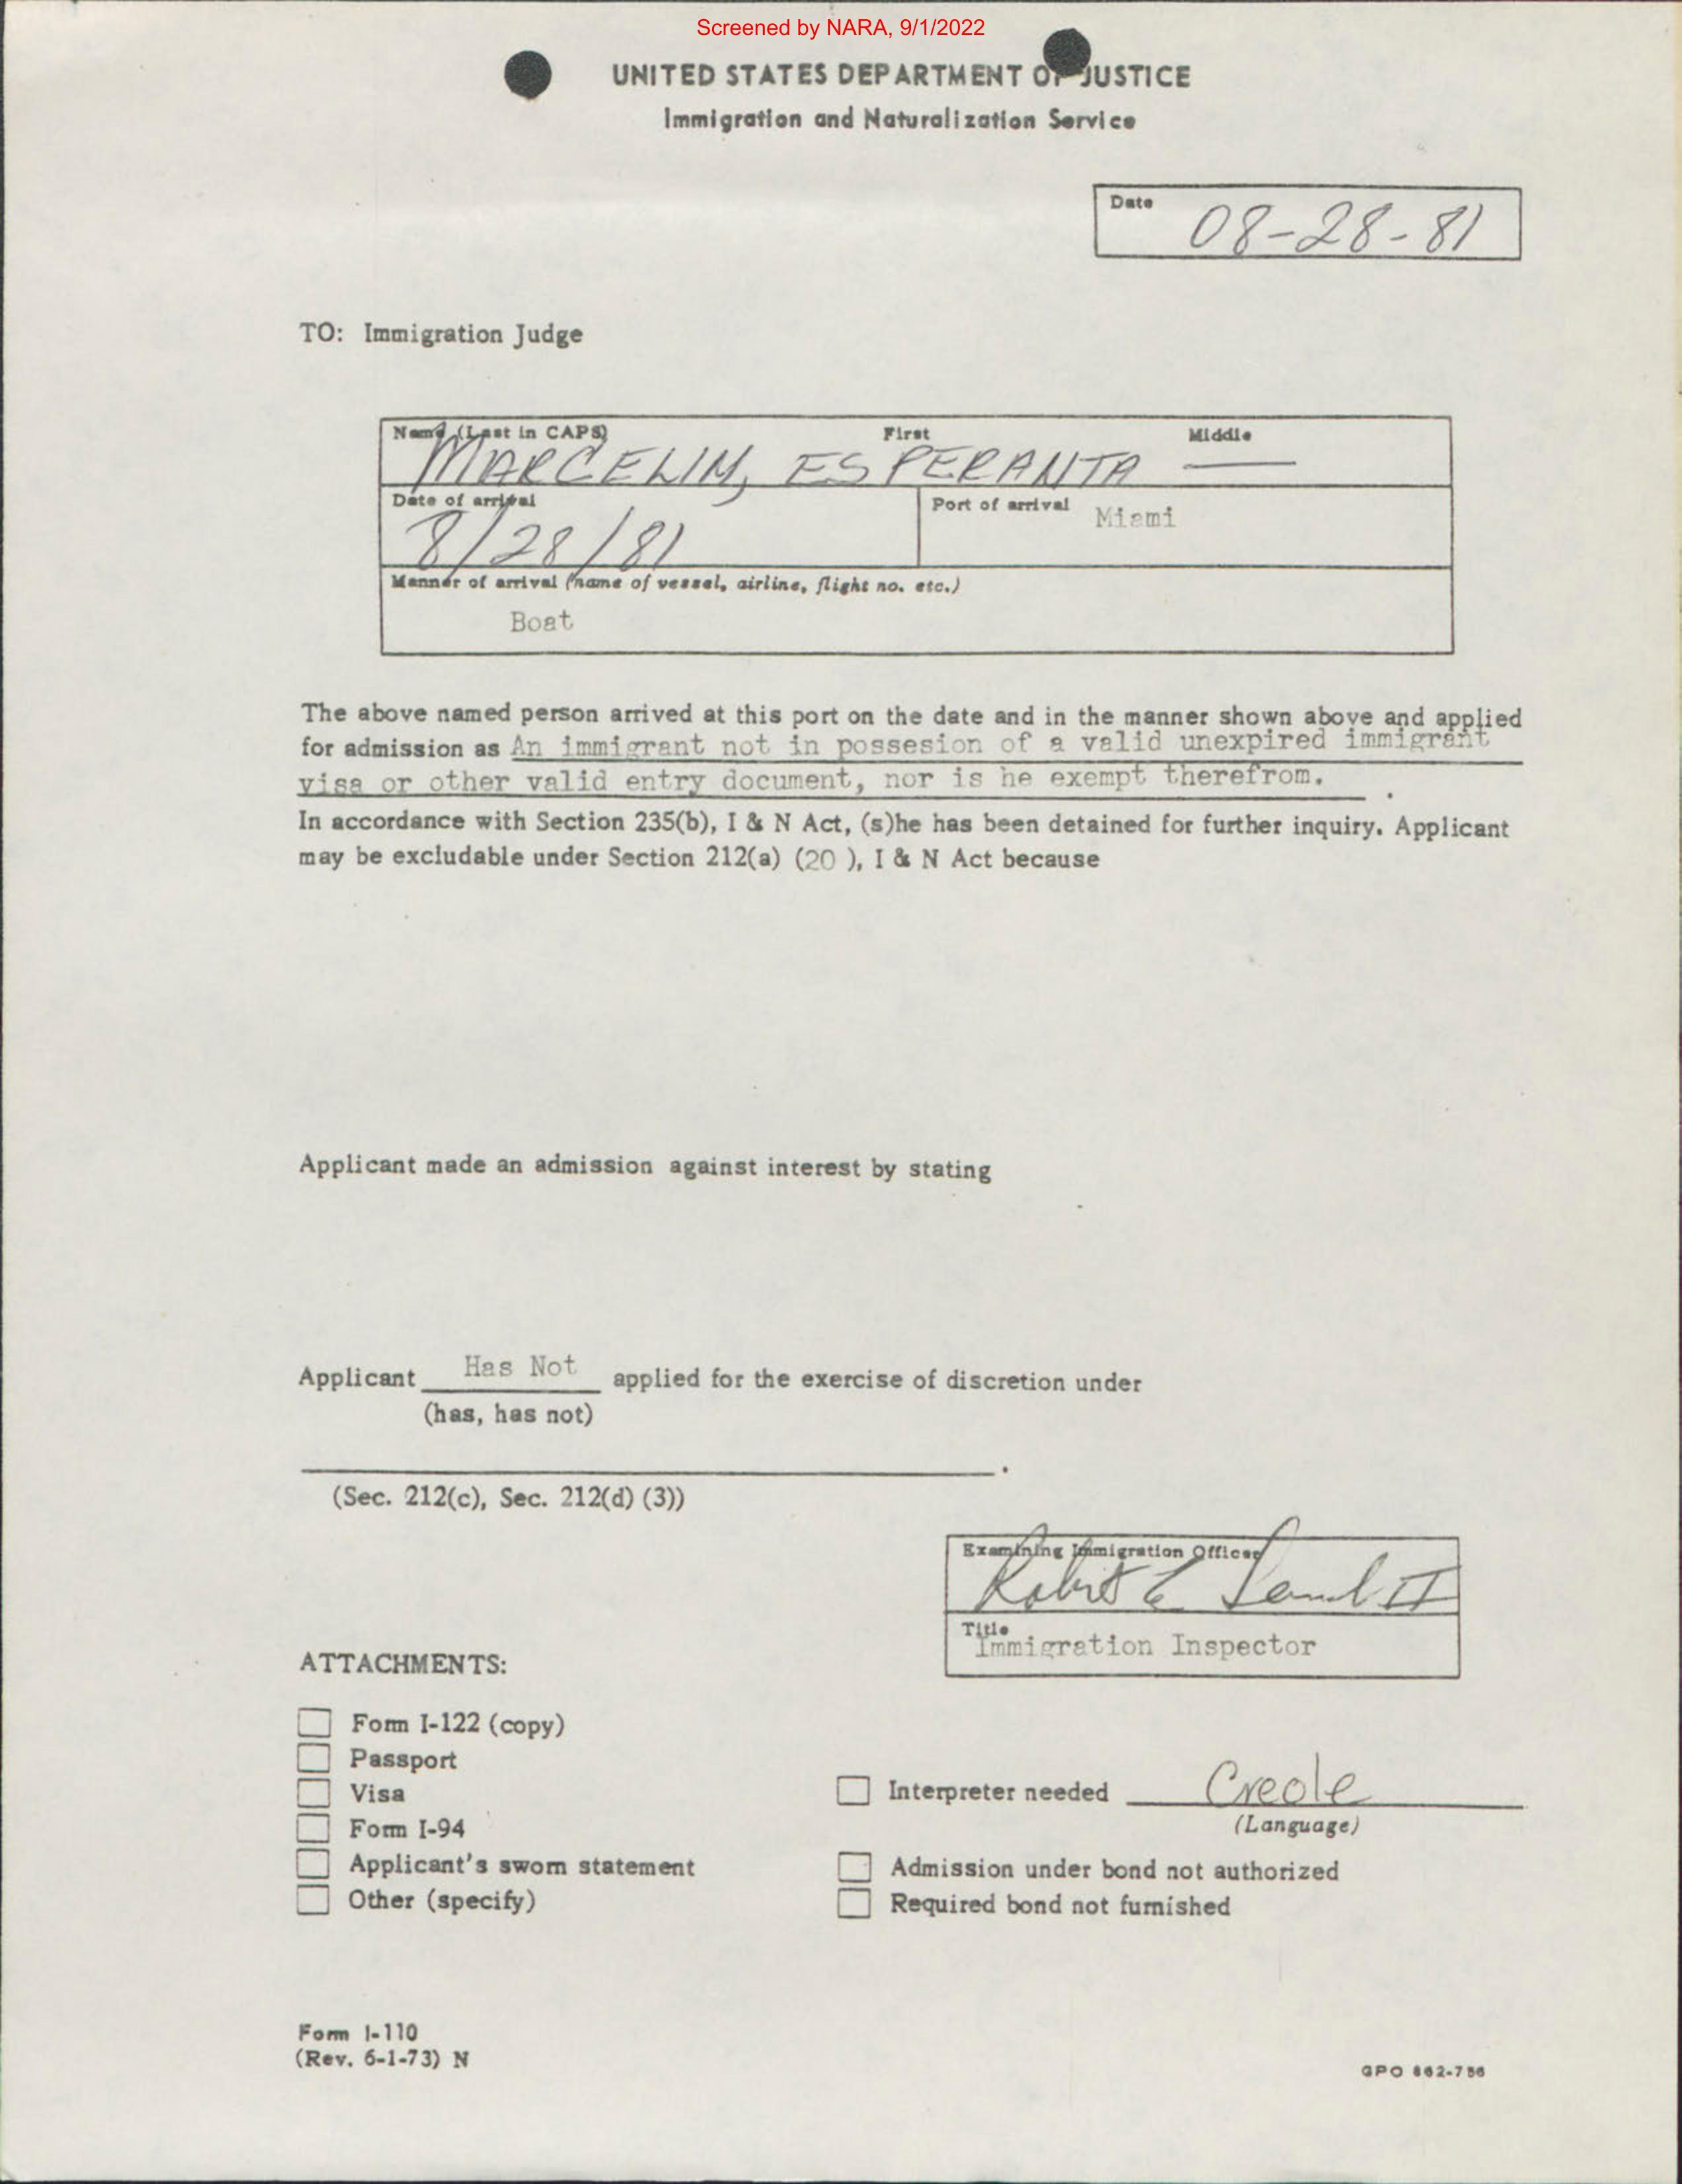 Screened by NARA, 9/1/2022
UNITED STATES DEPARTMENT OF JUSTICE
Immigration and Naturalization Service
Date 08-28-81
TO: Immigration Judge
Name (Last in CAPS) First Middle
MARCELIN, ESPERANTA —
Date of arrival Port of arrival Miami
8/28/81
Manner of arrival (name of vessel, airline, flight no. etc.)
Boat
The above named person arrived at this port on the date and in the manner shown above and applied
for admission as An immigrant not in possesion of a valid unexpired immigrant
visa or other valid entry document, nor is he exempt therefrom.
In accordance with Section 235(b), I & N Act, (s)he has been detained for further inquiry. Applicant
may be excludable under Section 212(a) (20 ), I & N Act because
Applicant made an admission against interest by stating
Applicant Has Not applied for the exercise of discretion under
(has, has not)
(Sec. 212(c), Sec. 212(d) (3))
Examining Immigration Officer
Robert E II
Title
Immigration Inspector
ATTACHMENTS:
Form I-122 (copy)
Passport
Visa
Interpreter needed Creole
(Language)
Form I-94
Applicant's sworn statement
Admission under bond not authorized
Other (specify)
Required bond not furnished
Form I-110
(Rev. 6-1-73) N
GPO 862-786